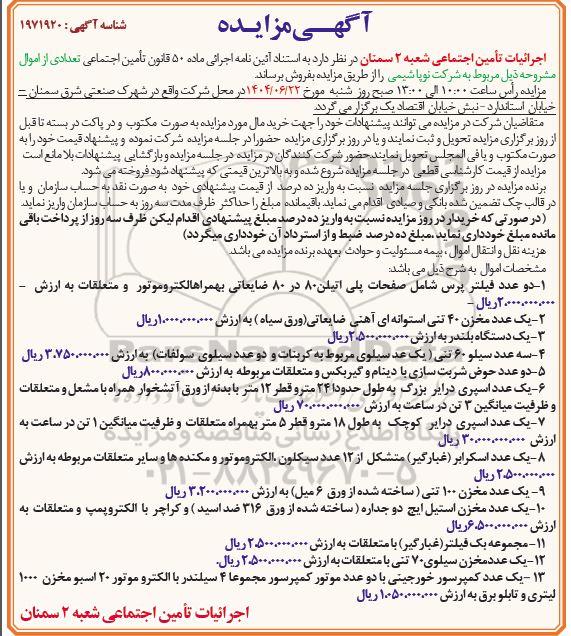 آگهـی مزایـده
شناسه آگهی : ۱۹۷۱۹۲۰
اجرائیات تأمین اجتماعی شعبه ۲ سمنان در نظر دارد به استناد آئین نامه اجرائی ماده ۵۰ قانون تأمین اجتماعی تعدادی از اموال
مشروحه ذیل مربوط به شرکت نوپا شیمی را از طریق مزایده بفروش برساند.
مزایده رأس ساعت ۱۰:۰۰ الی ۱۳:۰۰ صبح روز شنبه مورخ ۱۴۰۴/۰۶/۲۲ در محل شرکت واقع در شهرک صنعتی شرق سمنان –
خیابان استاندارد - نبش خیابان اقتصاد یک برگزار می گردد.
متقاضیان شرکت در مزایده می توانند پیشنهادات خود را جهت خرید مال مورد مزایده به صورت مکتوب و در پاکت در بسته تا قبل
از روز برگزاری مزایده تحویل و ثبت نمایند و یا در روز برگزاری مزایده حضورا در جلسه مزایده شرکت نموده و پیشنهاد قیمت خود را به
صورت مکتوب و یا فی المجلس تحویل نمایند.حضور شرکت کنندگان در مزایده در جلسه مزایده و بازگشایی پیشنهادات بلا مانع است
مزایده از قیمت کارشناسی قطعی در جلسه مزایده شروع شده و به بالاترین قیمتی که پیشنهاد شود فروخته می شود.
برنده مزایده در روز برگزاری جلسه مزایده نسبت به واریز ده درصد از قیمت پیشنهادی خود به صورت نقد به حساب سازمان و یا
در قالب چک تضمین شده بانکی و صیادی اقدام می نماید. باقیمانده مبلغ را حداکثر ظرف مدت سه روز به حساب سازمان واریز نماید.
( در صورتی که خریدار در روز مزایده نسبت به واریز ده درصد مبلغ پیشنهادی اقدام لیکن ظرف سه روز از پرداخت باقی
مانده مبلغ خودداری نماید.مبلغ ده درصد ضبط و از استرداد آن خودداری میگردد)
هزینه نقل و انتقال اموال ، بیمه مسئولیت و حوادث بعهده برنده مزایده می باشد.
مشخصات اموال به شرح ذیل می باشد:
۱-دو عدد فیلتر پرس شامل صفحات پلی اتیلن۸۰ در ۸۰ ضایعاتی بهمراهالکتروموتور و متعلقات به ارزش –
۲.۰۰۰.۰۰۰.۰۰۰ریال –
۲-یک عدد مخزن ۴۰ تنی استوانه ای آهنی ضایعاتی(ورق سیاه ) به ارزش ۱.۰۰۰.۰۰۰.۰۰۰ریال
۳-یک دستگاه بلندر به ارزش ۲.۵۰۰.۰۰۰.۰۰۰ریال
۴-سه عدد سیلو ۶۰ تنی ( یک عد سیلوی مربوط به کربنات و دو عدد سیلوی سولفات) به ارزش ۳.۷۵۰.۰۰۰.۰۰۰ ریال
۵-دو عدد حوض شربت سازی با دینام و گیربکس و متعلقات مربوطه به ارزش ۸۰۰.۰۰۰.۰۰۰ریال
۶-یک عدد اسپری درایر بزرگ به طول حدودا ۲۴ مترو قطر ۱۲ متر با بدنه از ورق آ تشخوار همراه با مشعل و متعلقات
و ظرفیت میانگین ۳ تن در ساعت به ارزش ۷۰.۰۰۰.۰۰۰.۰۰۰ ریال
۷-یک عدد اسپری درایر کوچک به طول ۱۸ مترو قطر ۵ متر بهمراه متعلقات و ظرفیت میانگین ۱ تن در ساعت به
ارزش ۳۰.۰۰۰.۰۰۰.۰۰۰ ریال
۸-یک عدد اسکرابر (غبارگیر) متشکل از ۱۲ عدد سیکلون ،الکتروموتور و مکنده ها و سایر متعلقات مربوطه به ارزش
۲.۵۰۰.۰۰۰.۰۰۰ ریال
۹- یک عدد مخزن ۱۰۰ تنی ( ساخته شده از ورق ۶ میل) به ارزش ۳.۲۰۰.۰۰۰.۰۰۰ ریال
۱۰-یک عدد مخزن استیل ایچ دو جداره ( ساخته شده از ورق ۳۱۶ ضد اسید ) و کراچر با الکتروپمپ و متعلقات به
ارزش ۶.۵۰۰.۰۰۰.۰۰۰ریال
۱۱-مجموعه بک فیلتر(غبارگیر) با متعلقات به ارزش ۲.۵۰۰.۰۰۰.۰۰۰ ریال
۱۲-یک عددمخزن سیلوی۷۰ تنی با متعلقات به ارزش ۲.۵۰۰.۰۰۰.۰۰۰ ریال.
۱۳ -یک عدد کمپرسور خورجینی با دو عدد موتور کمپرسور مجموعا ۴ سیلندر با الکترو موتور ۲۰ اسبو مخزن ۱۰۰۰
لیتری و تابلو برق به ارزش ۱.۰۵۰.۰۰۰.۰۰۰ ریال
اجرائیات تأمین اجتماعی شعبه ۲ سمنان
پایگاه اطلاع رسانی مناقصه و مزایده
۰۲۱-۸۸۳۴۹۶۷۰-۵